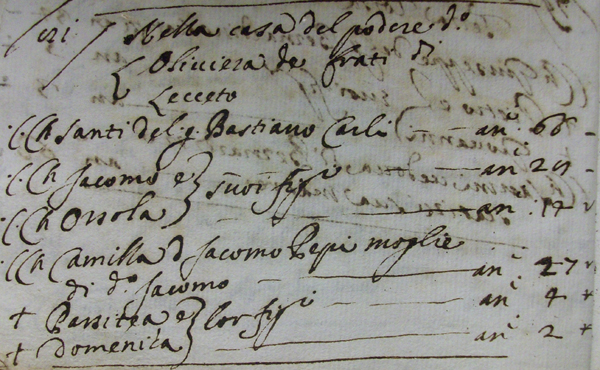 Nella casa del podere d.º
Oliviera de frati di
Lecceto
·CCh Santi del q. Bastiano Carli — an.i 66 -
·CCh Jacomo e } suoi figi — an 29 -
·CCh Orsola } — an. 17
·CCh Camilla d Jacomo Pepi moglie
di d.º Jacomo — an.i 27
+ Parsitea e } lor figi — an.i 4 +
+ Domenica } — an.i 2 +